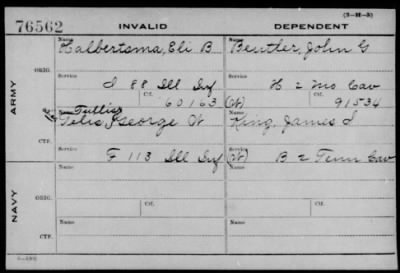 76562 INVALID DEPENDENT (3-H-3)
Name Halbertsma, Eli B. Name Beutler, John G
ARMY
ORIG.
Service Service
I 88 Ill Inf H 2 Mo Cav
Ctf. 60163 (W) Ctf. 91534
Name Tullis
Petis, George W Name King, James S
CTF.
Service Service
F 113 Ill Inf (W) B 2 Tenn Cav
Name Name
NAVY
ORIG.
Ctf. Ctf.
Name Name
CTF.